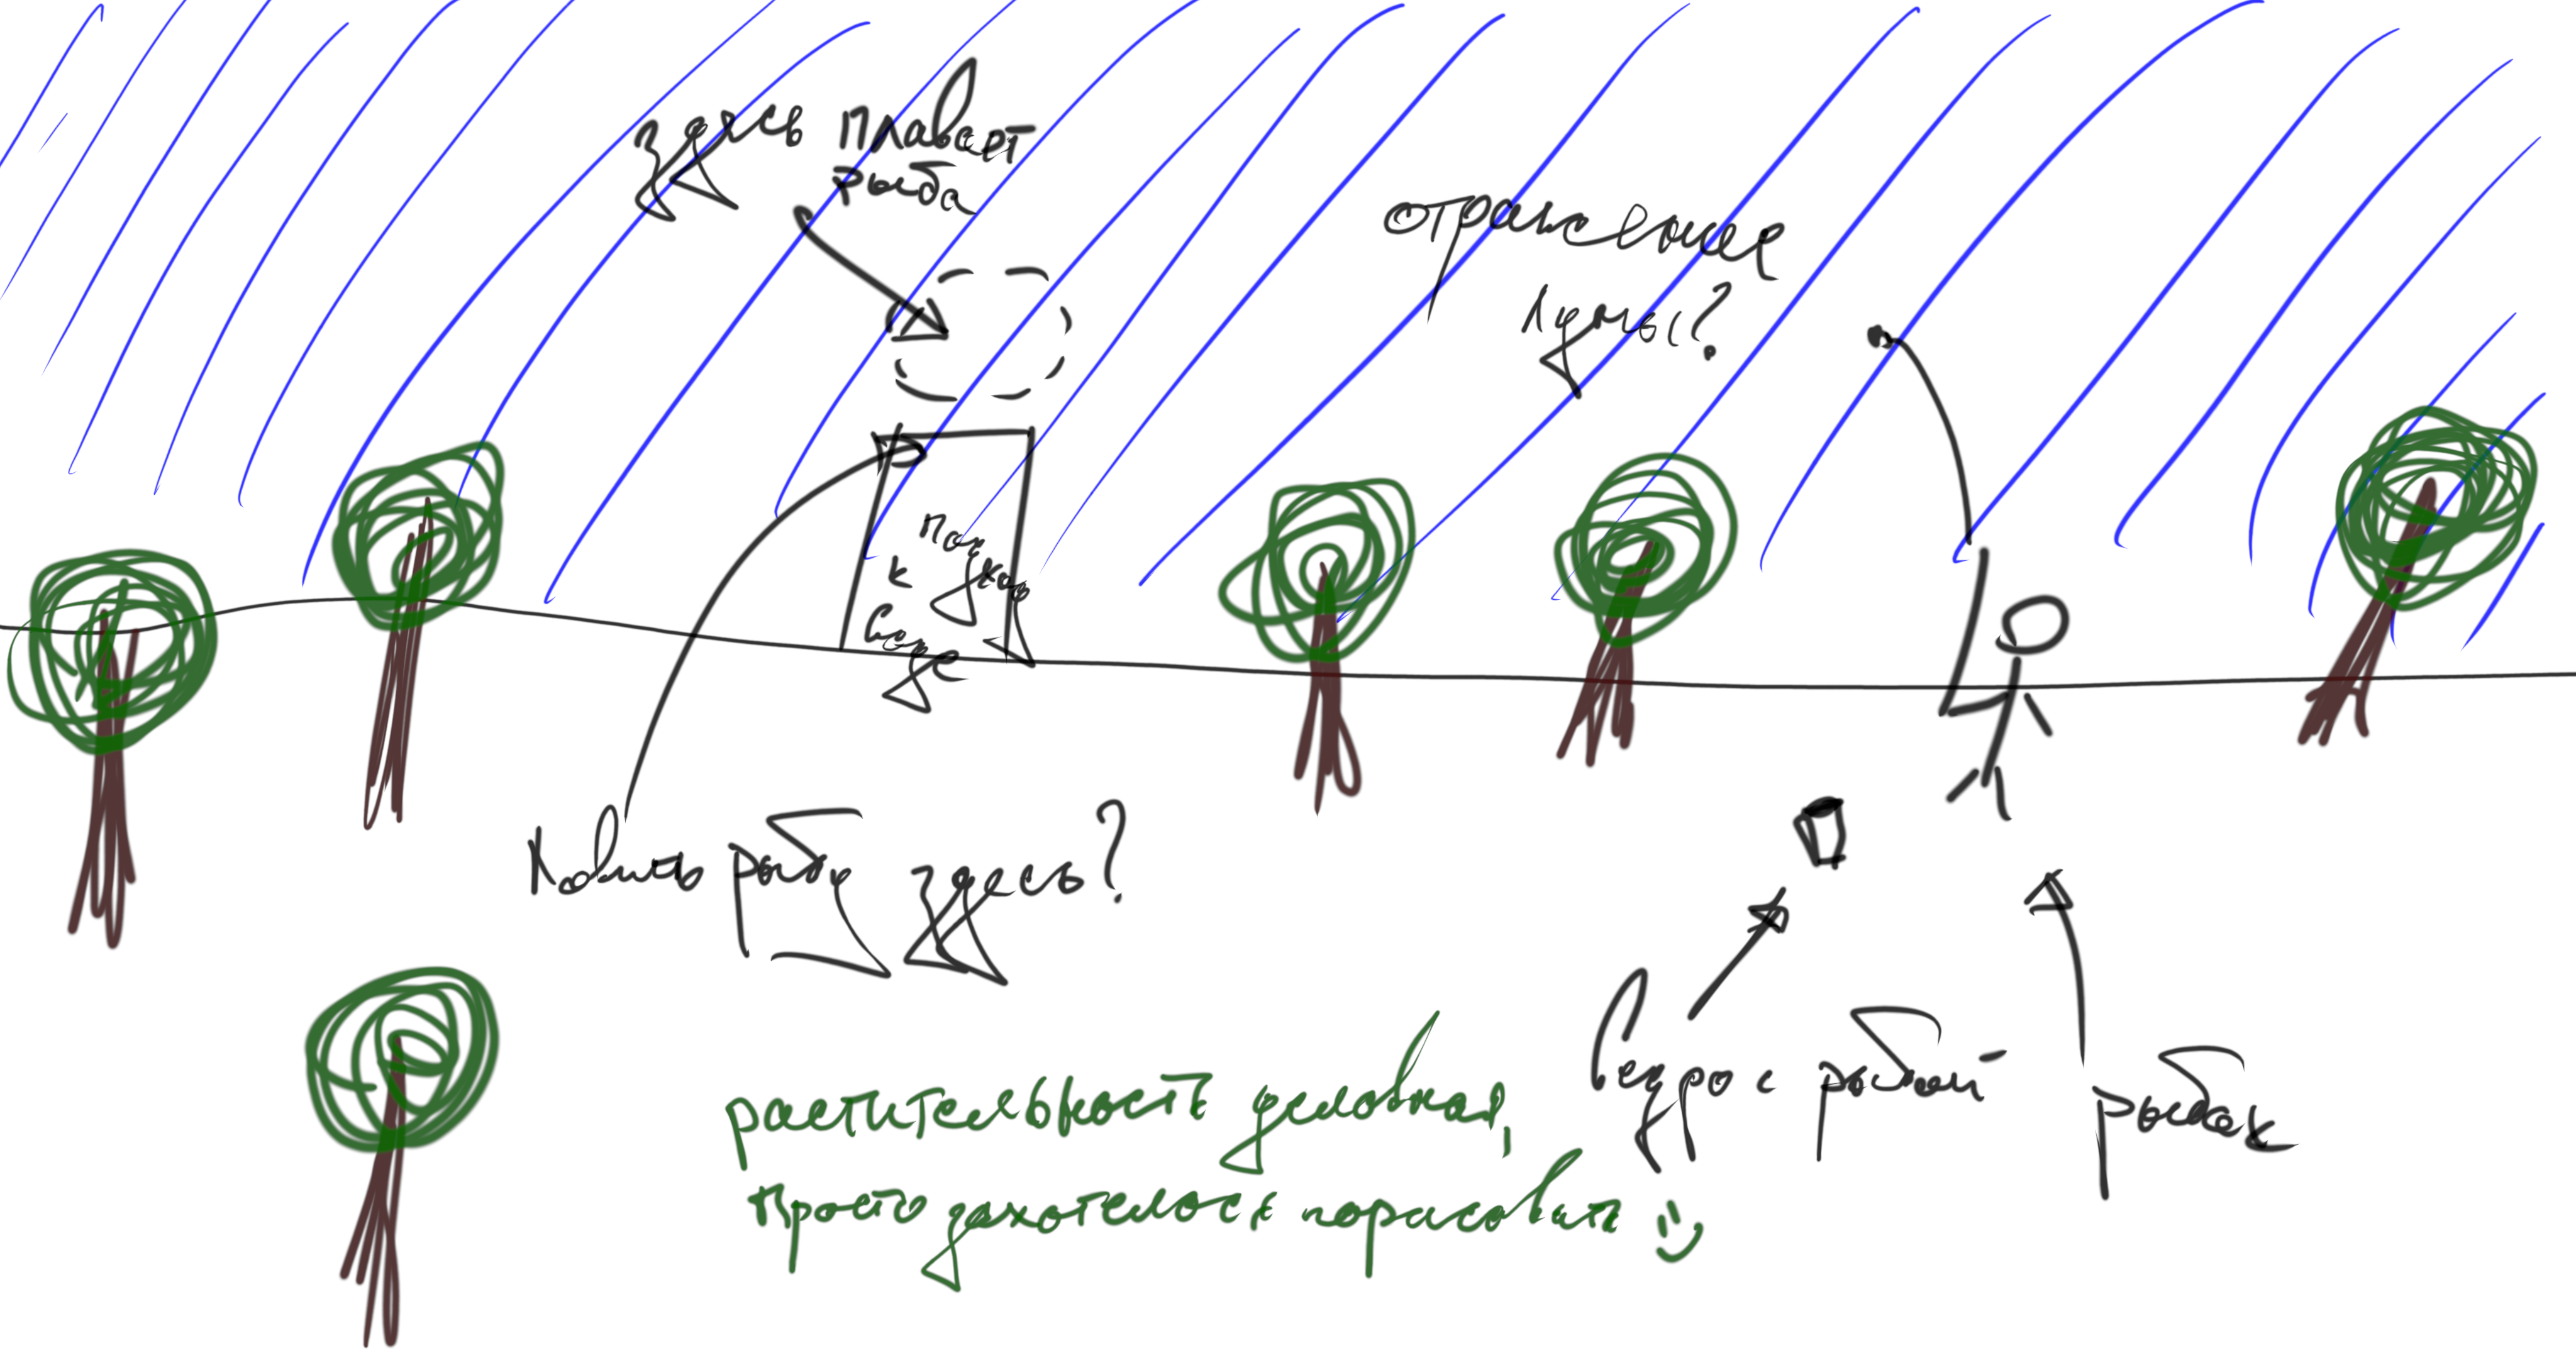 здесь плавает
рыба
отражение
Луны?
подход
к
воде
Ловить рыбу здесь?
ведро с рыбой
рыбак
растительность условная,
просто захотелось порисовать :)